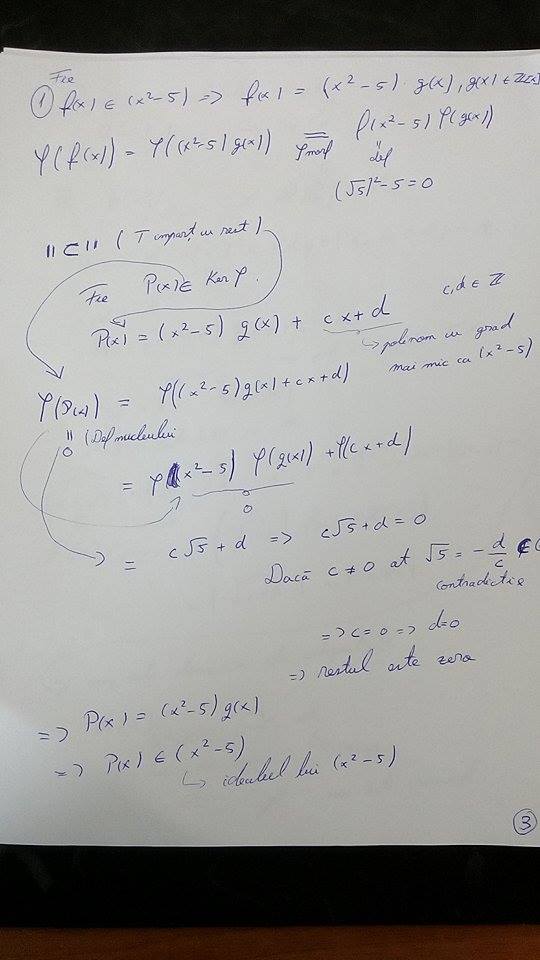 Fie
① f(x) ∈ (x²-5) => f(x) = (x²-5) · g(x), g(x) ∈ ℤ[x]
φ(f(x)) = φ((x²-5) g(x)) = φ(x²-5) φ(g(x))
φ morf
" def
(√5)²-5 = 0
"⊂" (T împarț cu rest)
Fie P(x) ∈ Ker φ.
P(x) = (x²-5) g(x) + cx+d
c,d ∈ ℤ
↳ polinom cu grad
mai mic ca (x²-5)
φ(P(x)) = φ((x²-5)g(x)+cx+d)
" (Def nucleului
0
= φ(x²-5) φ(g(x)) + φ(cx+d)
" 0
= c√5+d => c√5+d = 0
Dacă c ≠ 0 at √5 = -d/c ∉
contradicție
=> c=0 => d=0
=> restul este zero
=> P(x) = (x²-5) g(x)
=> P(x) ∈ (x²-5)
↳ idealul lui (x²-5)
③